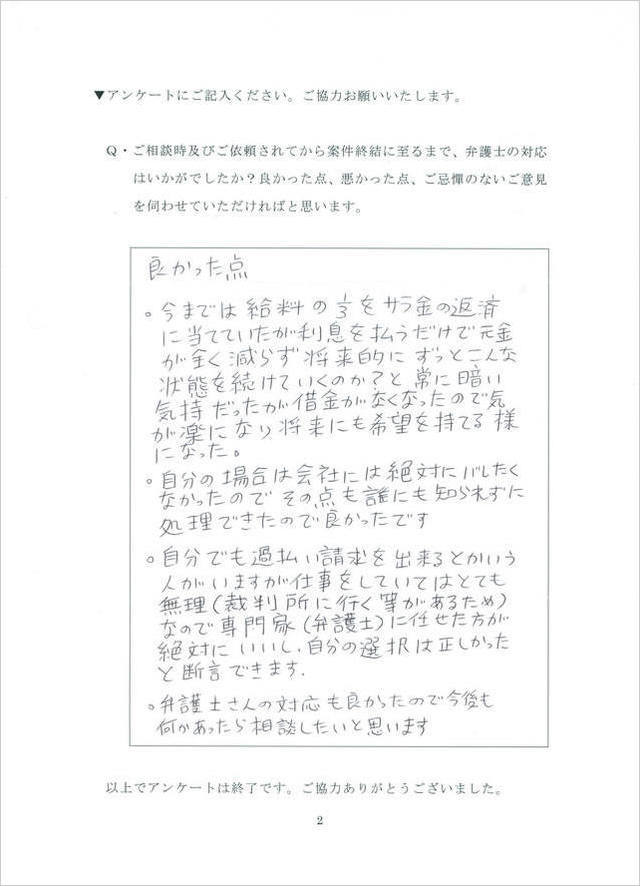 ▼アンケートにご記入ください。ご協力お願いいたします。
Q・ご相談時及びご依頼されてから案件終結に至るまで、弁護士の対応
はいかがでしたか？良かった点、悪かった点、ご忌憚のないご意見
を伺わせていただければと思います。
良かった点
。今までは給料の1/3をサラ金の返済
に当てていたが利息を払うだけで元金
が全く減らず将来的にずっとこんな
状態を続けていくのか？と常に暗い
気持だったが借金がなくなったので気
が楽になり将来にも希望を持てる様
になった。
。自分の場合は会社には絶対にバレたく
なかったのでその点も誰にも知られずに
処理できたので良かったです
。自分でも過払い請求を出来るとかいう
人がいますが仕事をしていてはとても
無理(裁判所に行く等があるため)
なので専門家(弁護士)に任せた方が
絶対にいいし、自分の選択は正しかった
と断言できます.
。弁護士さんの対応も良かったので今後も
何かあったら相談したいと思います
以上でアンケートは終了です。ご協力ありがとうございました。
2